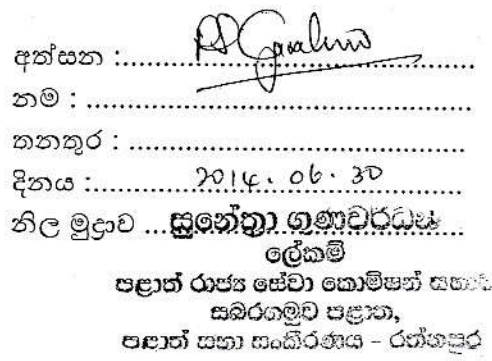 අත්සන :..........
නම : ..........
තනතුර : ..........
දිනය :.......... 2014. 06. 30
නිල මුද්‍රාව ... සුනේත්‍රා ගුණවර්ධන
ලේකම්
පළාත් රාජ්‍ය සේවා කොමිෂන් සභාව
සබරගමුව පළාත,
පළාත් සභා සංකීරණය - රත්නපුර